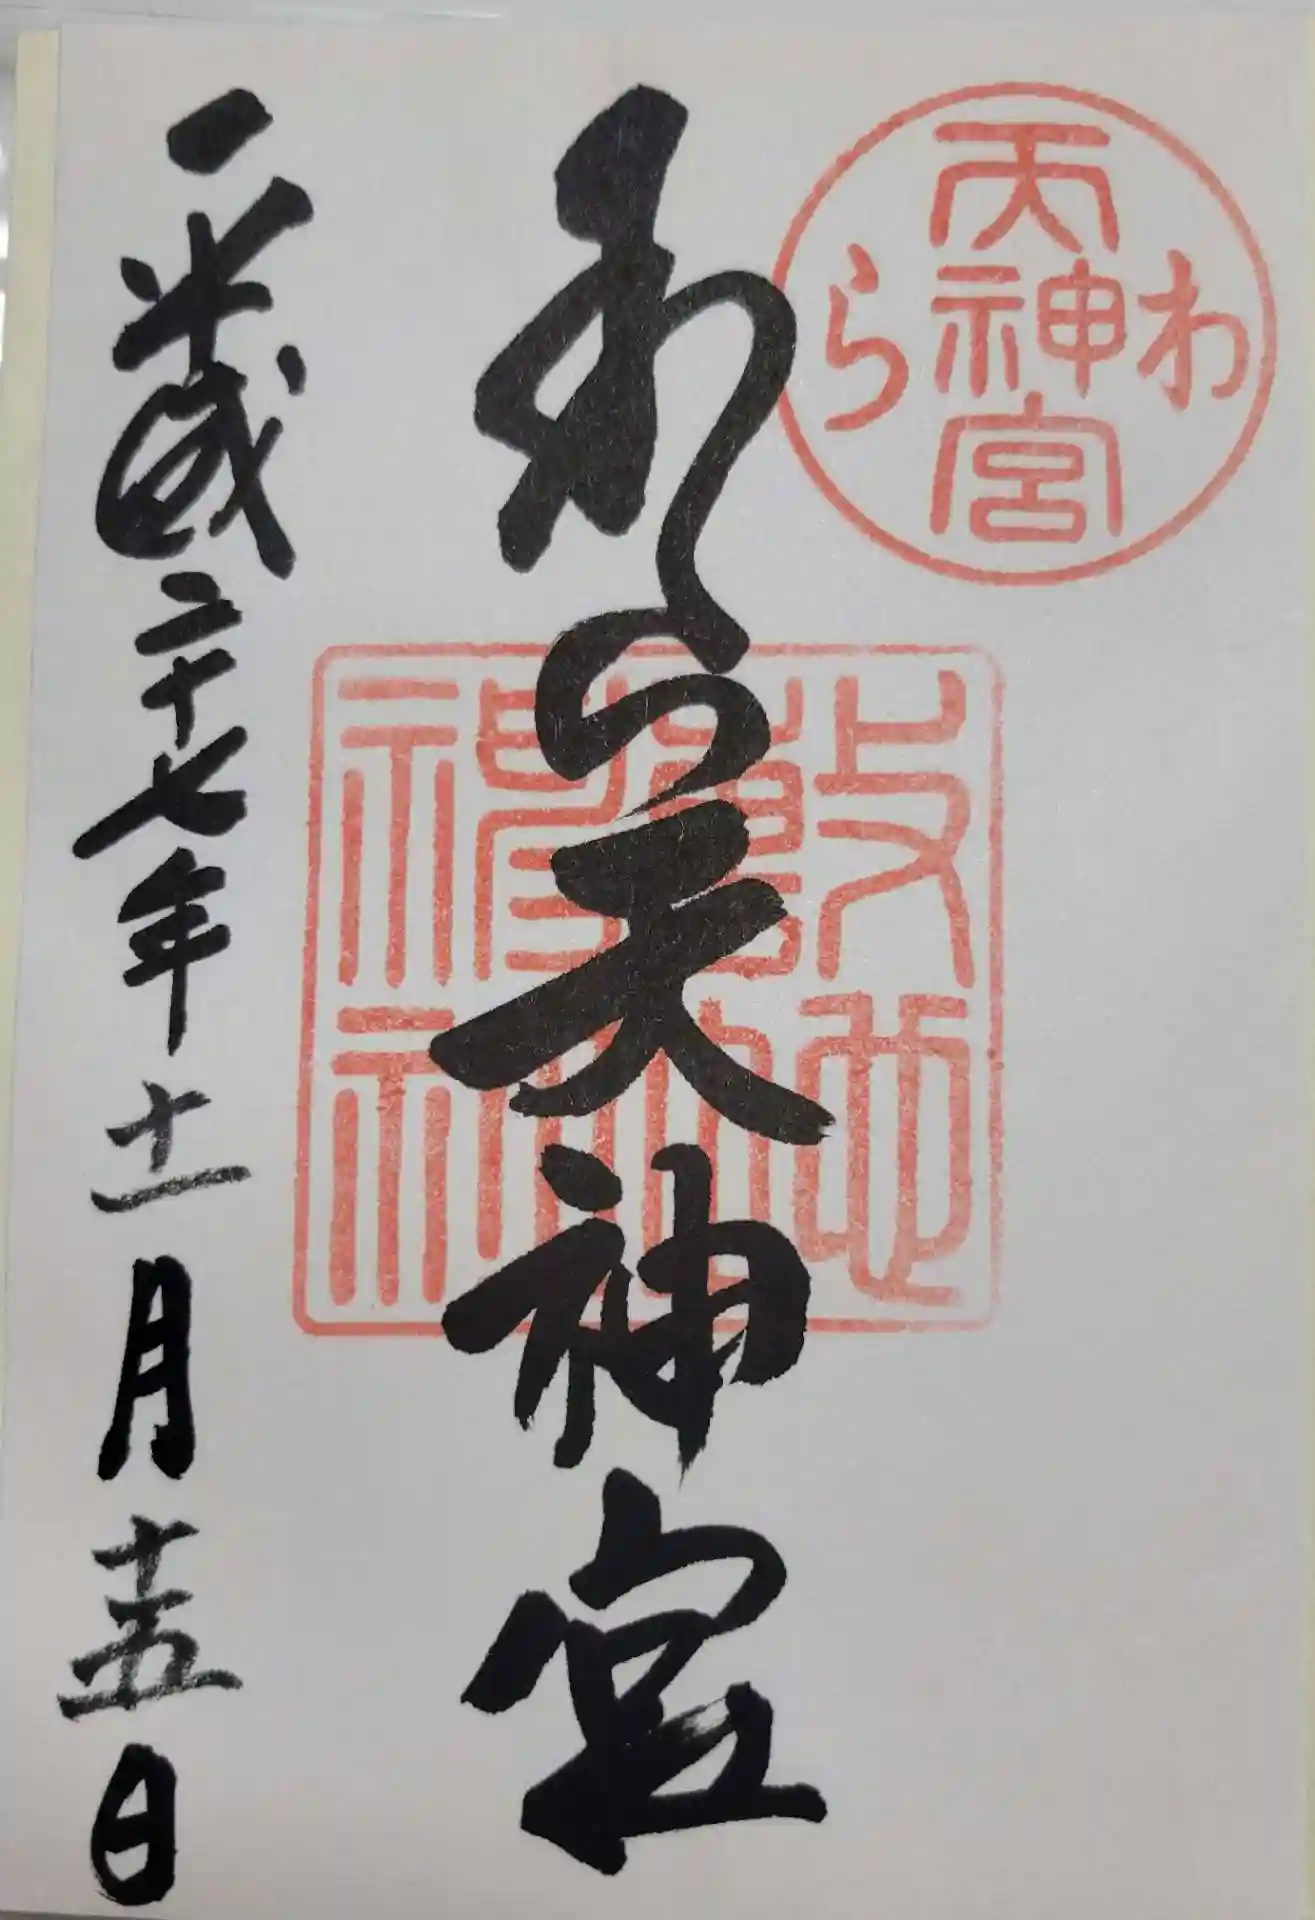 天神宮
わら
わら天神宮
平成二十七年十一月十五日
敷地神社